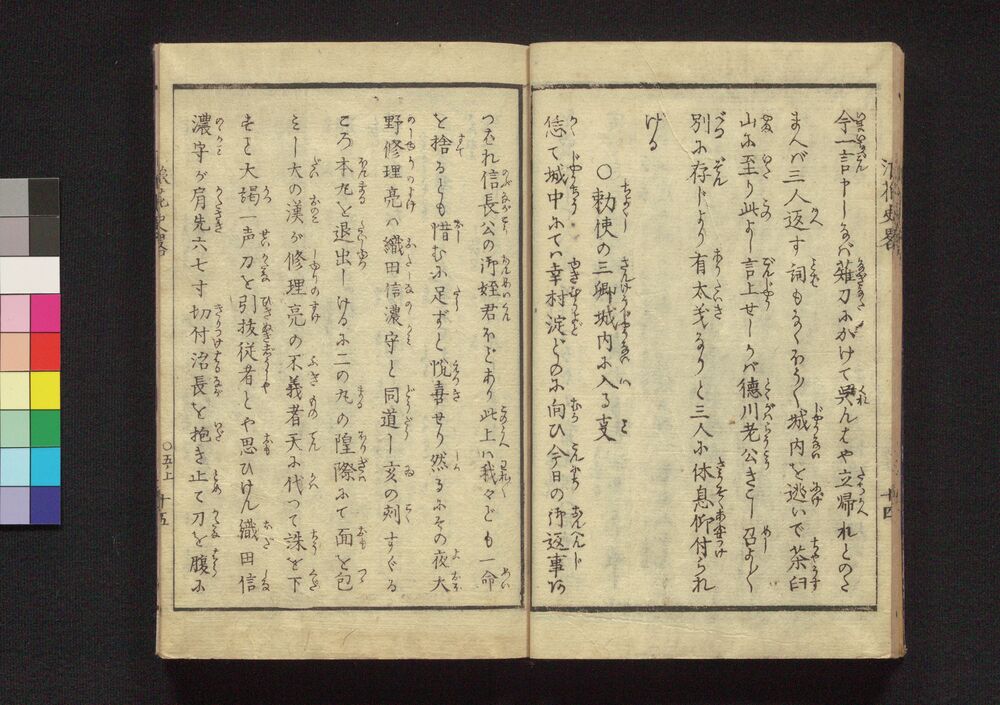 今一言申しなバ薙刀にかけて呉んはや立帰れとのた
まへバ三人返す詞もなくやう〱城内を逃いで茶臼
山に至り此よし言上せしかバ徳川老公きこし召よく〱
別に存じより有太義なりと三人に休息仰付られ
ける
○勅使の三卿城内に入る支
恁て城中にてハ幸村淀どのに向ひ今日の御返事
つバれ信長公の御姪君ほどあり此上ハ我々ども一命
を捨るとも惜むに足ずと悦喜せり然るにその夜大
野修理亮ハ織田信濃守と同道し亥の刻すぐる
ころ本丸を退出しけるに二の丸の隍際にて面を包
ミし大の漢が修理亮の不義者天に代つて誅を下
すと大謁一声刀を引抜従者とや思ひけん織田信
濃守が肩先六七寸切付治長を抱き止て刀を腹に
十四
○五ノ上
十五